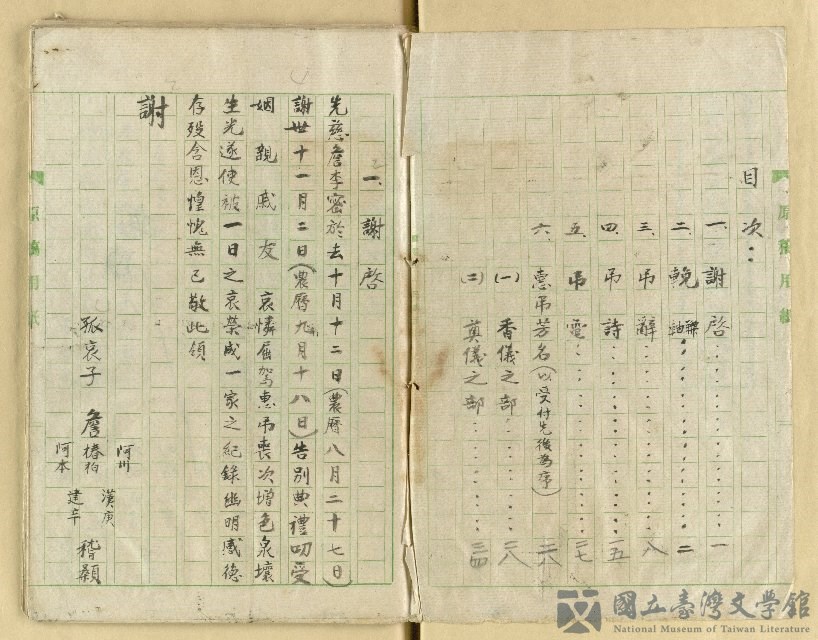 目次：
一、謝啓……一
二、輓聯軸……二
三、吊辭……八
四、吊詩……一五
五、吊電……二七
六、惠吊芳名（以受付先後為序）……二八
（一）香儀之部……二八
（二）奠儀之部……三四
原稿用紙
一、謝啓
先慈詹李蜜於去十月十二日（農曆八月二十七日）
謝世十一月二日（農曆九月十八日）告別典禮叨受
姻親戚友　哀憐屈駕惠吊喪次增色泉壤
生光遂使被一日之哀榮成一家之紀錄幽明感德
存歿含恩惶愧無已敬此領
謝
孤哀子　詹
阿川
椿柏
阿本
漢庚
建辛
稽顙
原稿用紙
國立臺灣文學館
National Museum of Taiwan Literature